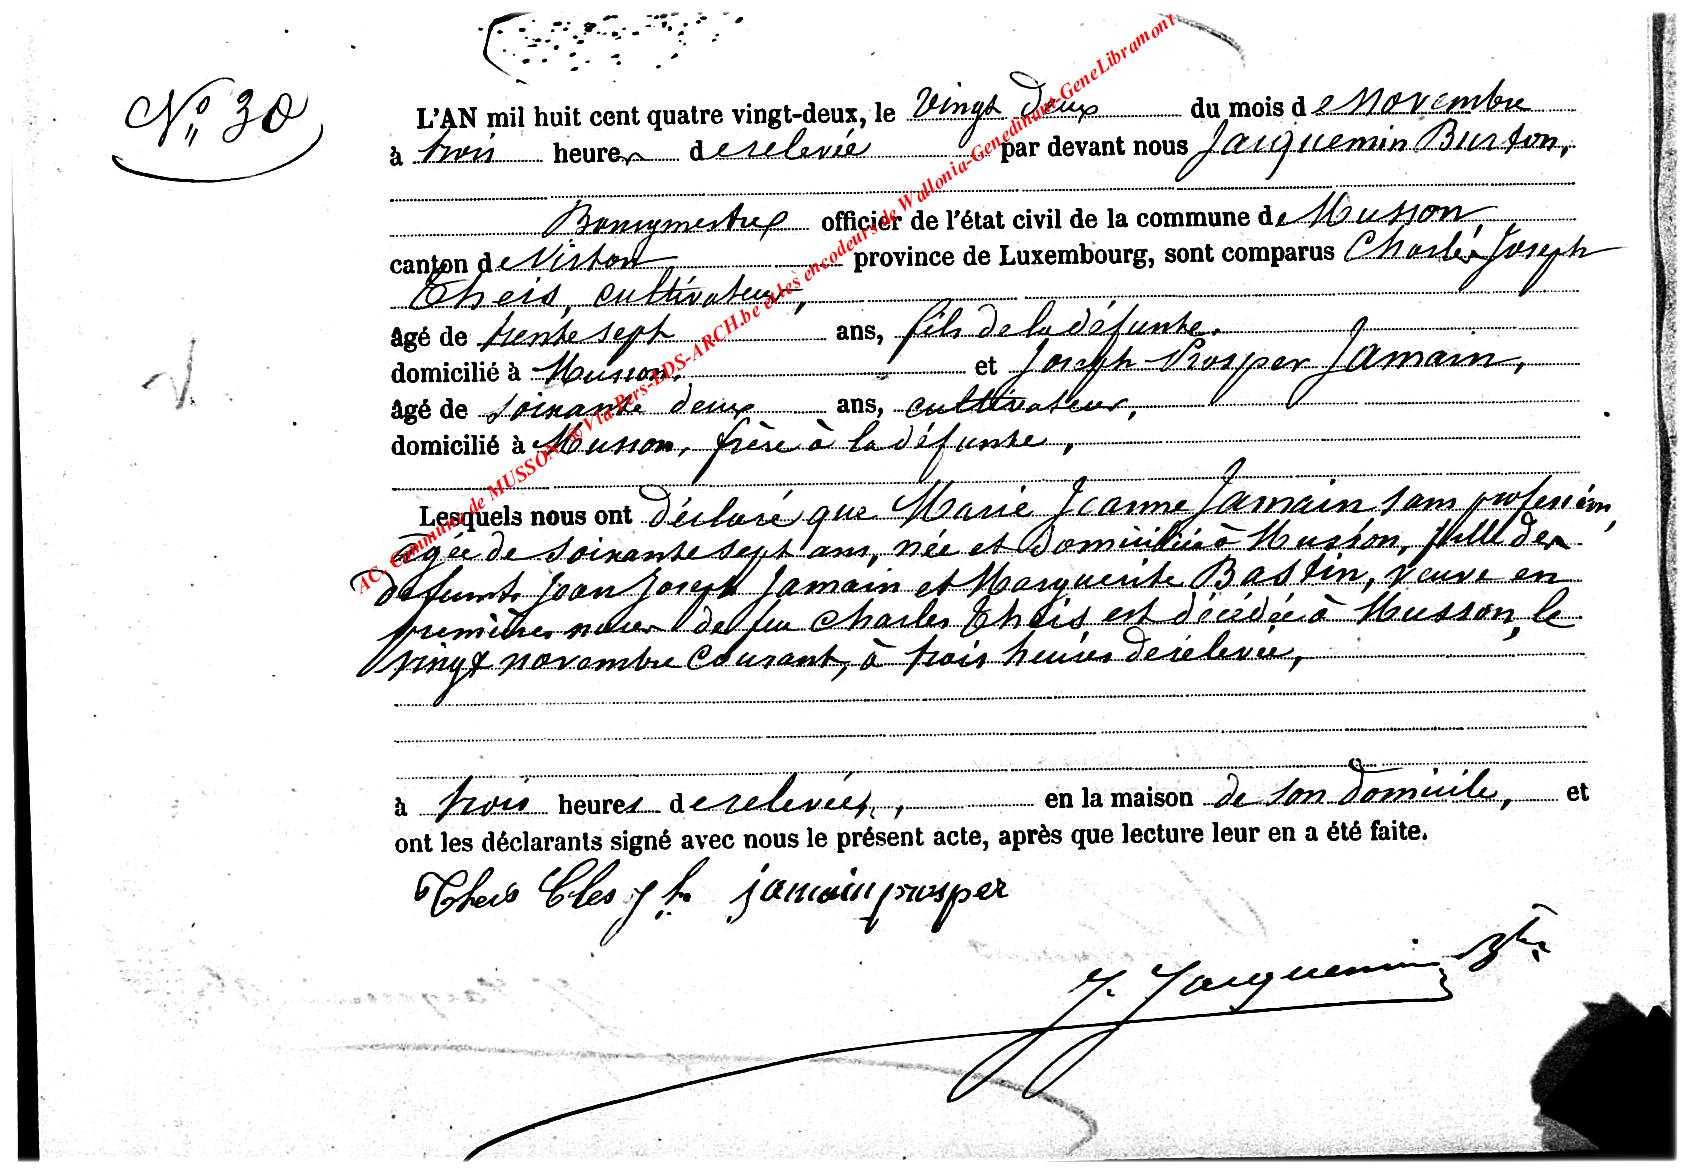 N° 30
L'AN mil huit cent quatre vingt-deux, le vingt deux du mois de novembre
à trois heures de relevée par devant nous Jacquemin Burton,
Bourgmestre officier de l'état civil de la commune de Musson
canton de Virton province de Luxembourg, sont comparus Charles Joseph
Theis, cultivateur,
âgé de trente sept ans, fils de la défunte.
domicilié à Musson, et Joseph Prosper Jamain,
âgé de soixante deux ans, cultivateur,
domicilié à Musson, frère à la défunte,
Lesquels nous ont déclaré que Marie Jeanne Jamain sans profession,
agée de soixante sept ans, née et domiciliée à Musson, fille des
defunts Jean Joseph Jamain et Marguerite Bastin, veuve en
premières noces de feu Charles Theis est décédée à Musson, le
vingt novembre courant, à trois heures de relevée,
à trois heures de relevée, en la maison de son domicile, et
ont les déclarants signé avec nous le présent acte, après que lecture leur en a été faite.
Theis Cles Jh jamain prosper
J. Jacquemin Btn
AC. Commune de MUSSON @ Via Pers-LDS-ARCH.be et les encodeurs de Wallonia-Genedinant-GeneLibramont